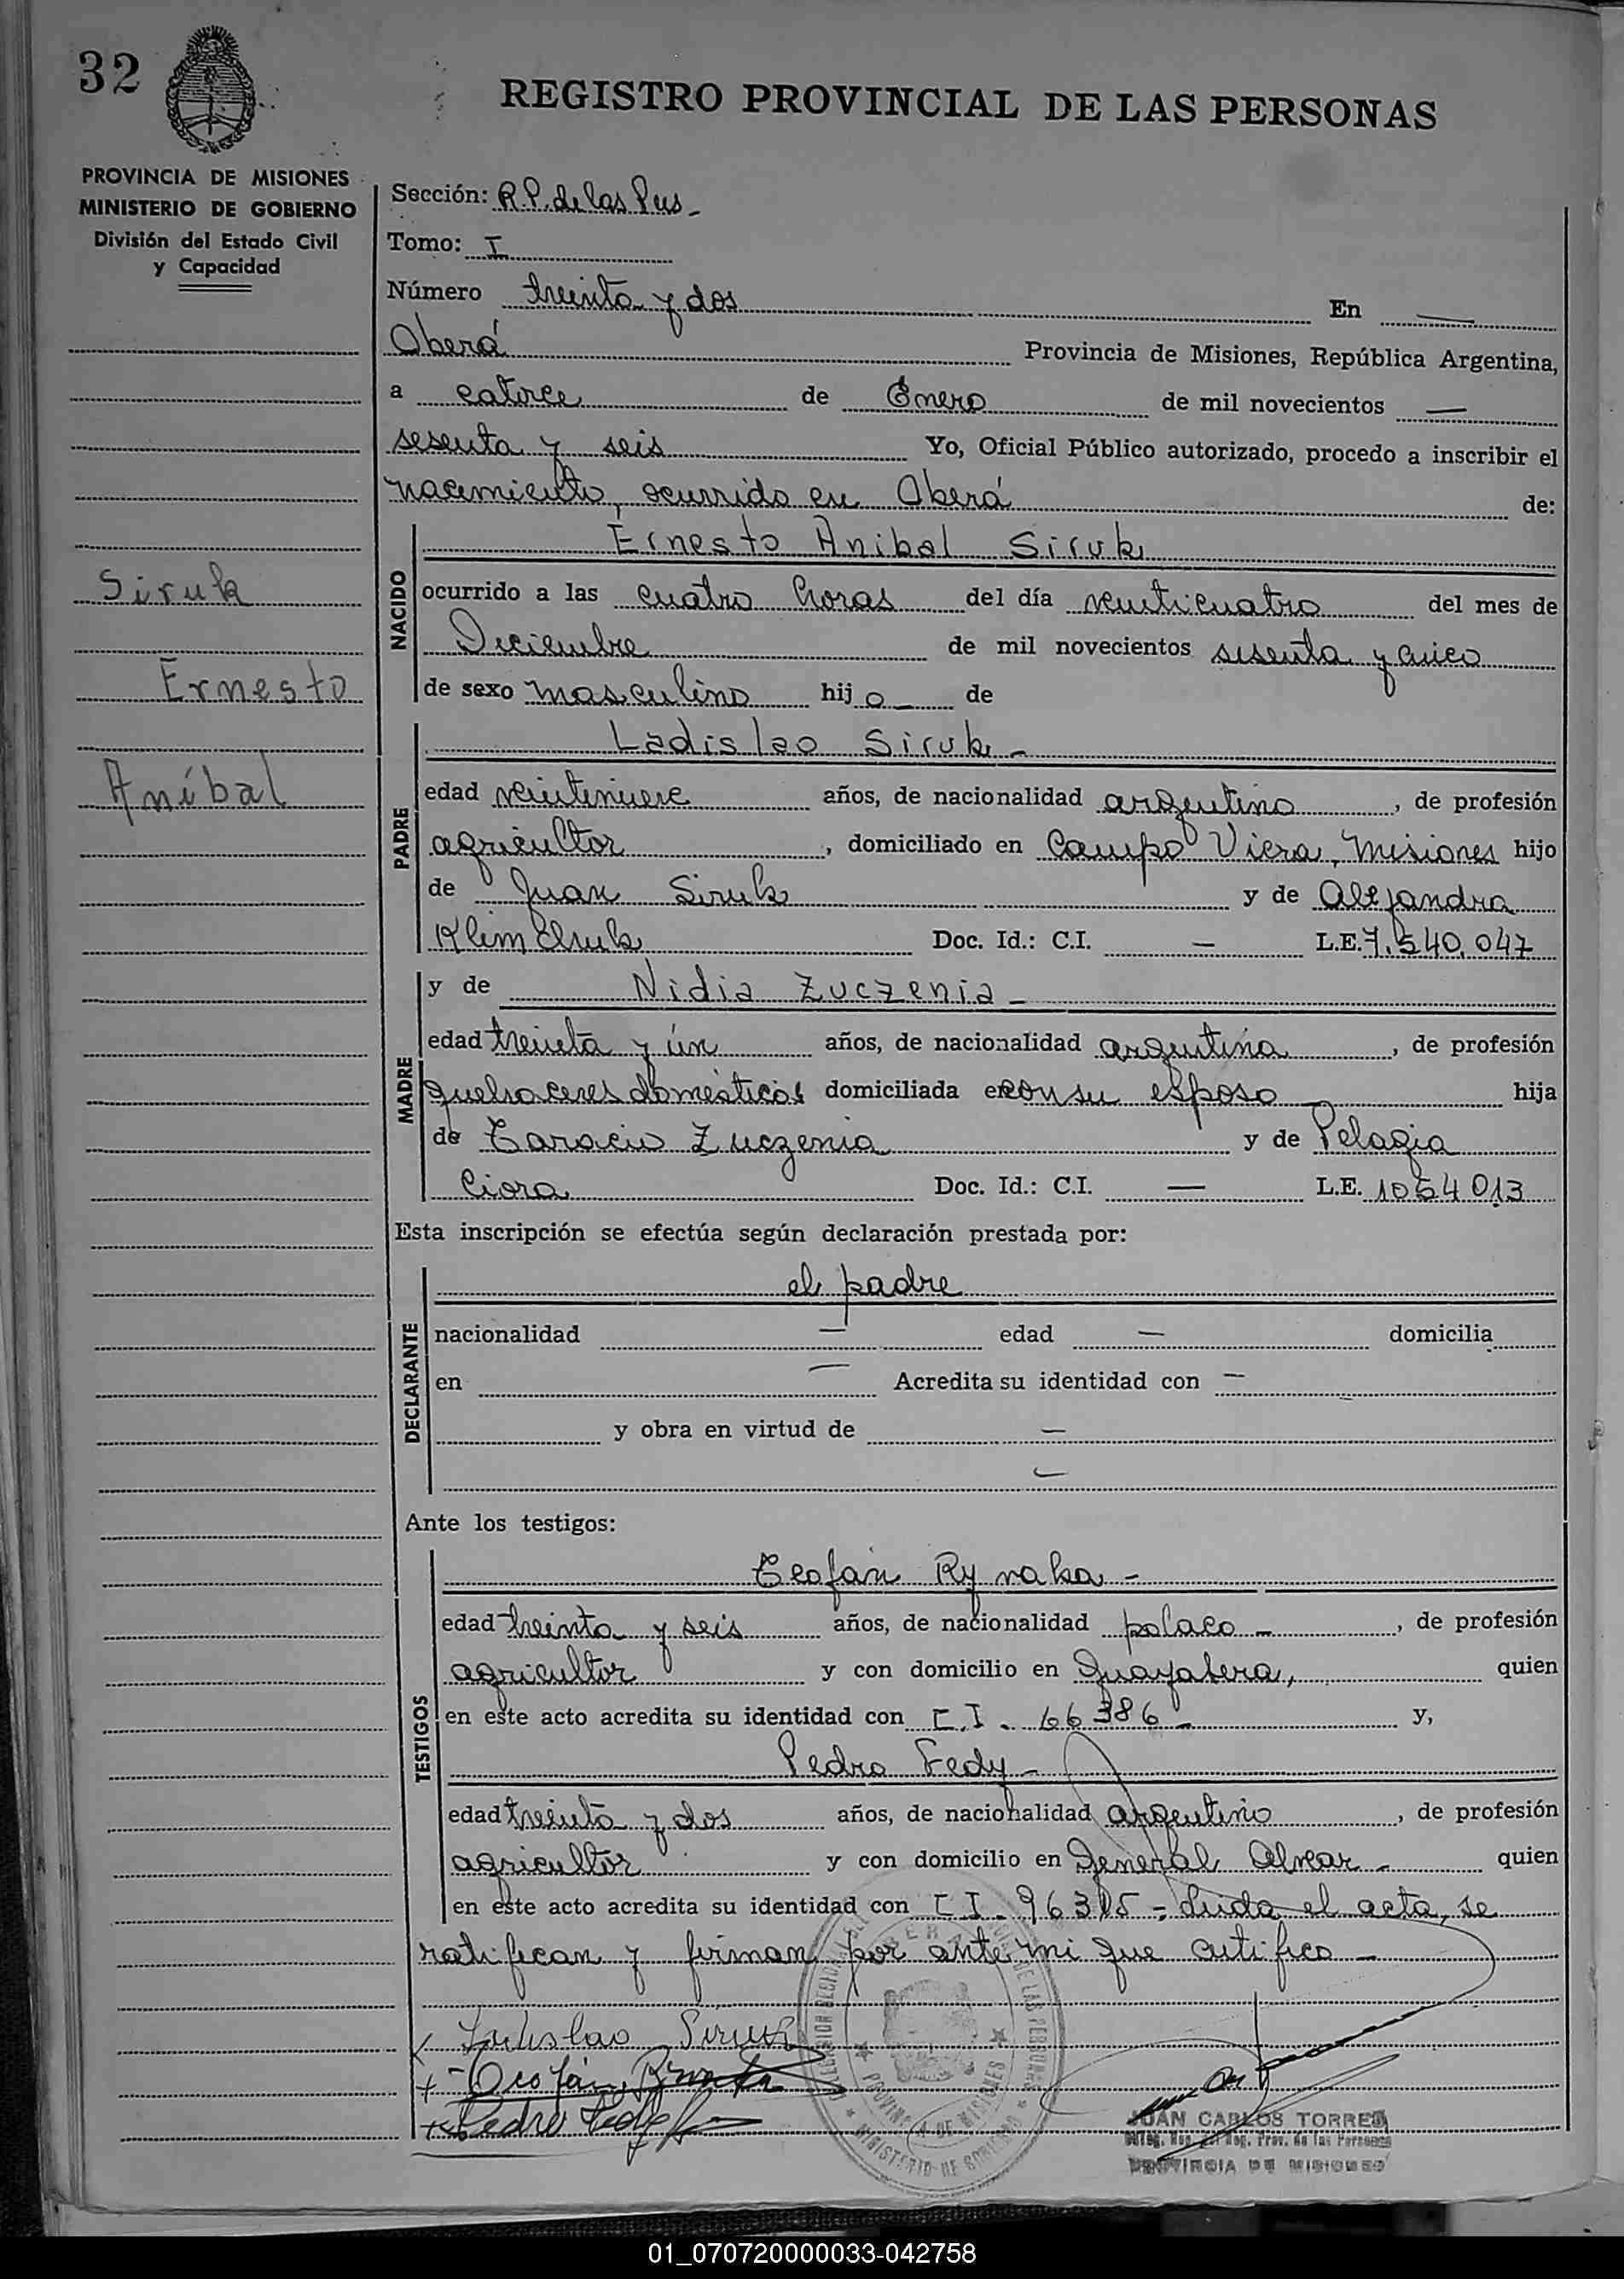 32
REGISTRO PROVINCIAL DE LAS PERSONAS
PROVINCIA DE MISIONES
MINISTERIO DE GOBIERNO
División del Estado Civil
y Capacidad
Sección: R.P. de las Pers -
Tomo: I
Número treinta y dos En —
Oberá Provincia de Misiones, República Argentina,
a catorce de Enero de mil novecientos —
sesenta y seis Yo, Oficial Público autorizado, procedo a inscribir el
nacimiento, ocurrido en Oberá de:
Siruk
Ernesto
Aníbal
NACIDO
Ernesto Anibal Siruk
ocurrido a las cuatro horas del día veinticuatro del mes de
Diciembre de mil novecientos sesenta y cinco
de sexo masculino hijo — de
PADRE
Ladislao Siruk -
edad veintinueve años, de nacionalidad argentino, de profesión
agricultor, domiciliado en Campo Viera, Misiones hijo
de Juan Siruk y de Alejandra
Klimchuk Doc. Id.: C.I. — L.E. 7.540.047
MADRE
y de Nidia Zuczenia -
edad treinta y ún años, de nacionalidad argentina, de profesión
quehaceres domésticos domiciliada en con su esposo hija
de Taracio Zuczenia y de Pelagia
Ciora Doc. Id.: C.I. — L.E. 1054013
Esta inscripción se efectúa según declaración prestada por:
DECLARANTE
el padre
nacionalidad — edad — domicilia
en — Acredita su identidad con —
y obra en virtud de —
—
Ante los testigos:
TESTIGOS
Teofan Rynaka -
edad treinta y seis años, de nacionalidad polaco -, de profesión
agricultor y con domicilio en Guayabera, quien
en este acto acredita su identidad con C.I. - 66386 - y,
Pedro Fedy -
edad treinta y dos años, de nacionalidad argentino, de profesión
agricultor y con domicilio en General Alvear - quien
en este acto acredita su identidad con C I - 96315 - Leida el acta, se
ratifican y firman por ante mi que certifico -
Ladislao Siruk
Teofán
Pedro Fedy
PROVINCIA DE MISIONES
MINISTERIO DE GOBIERNO
JUAN CARLOS TORRES
Reg. Prov. de las Personas
PROVINCIA DE MISIONES
01_070720000033-042758